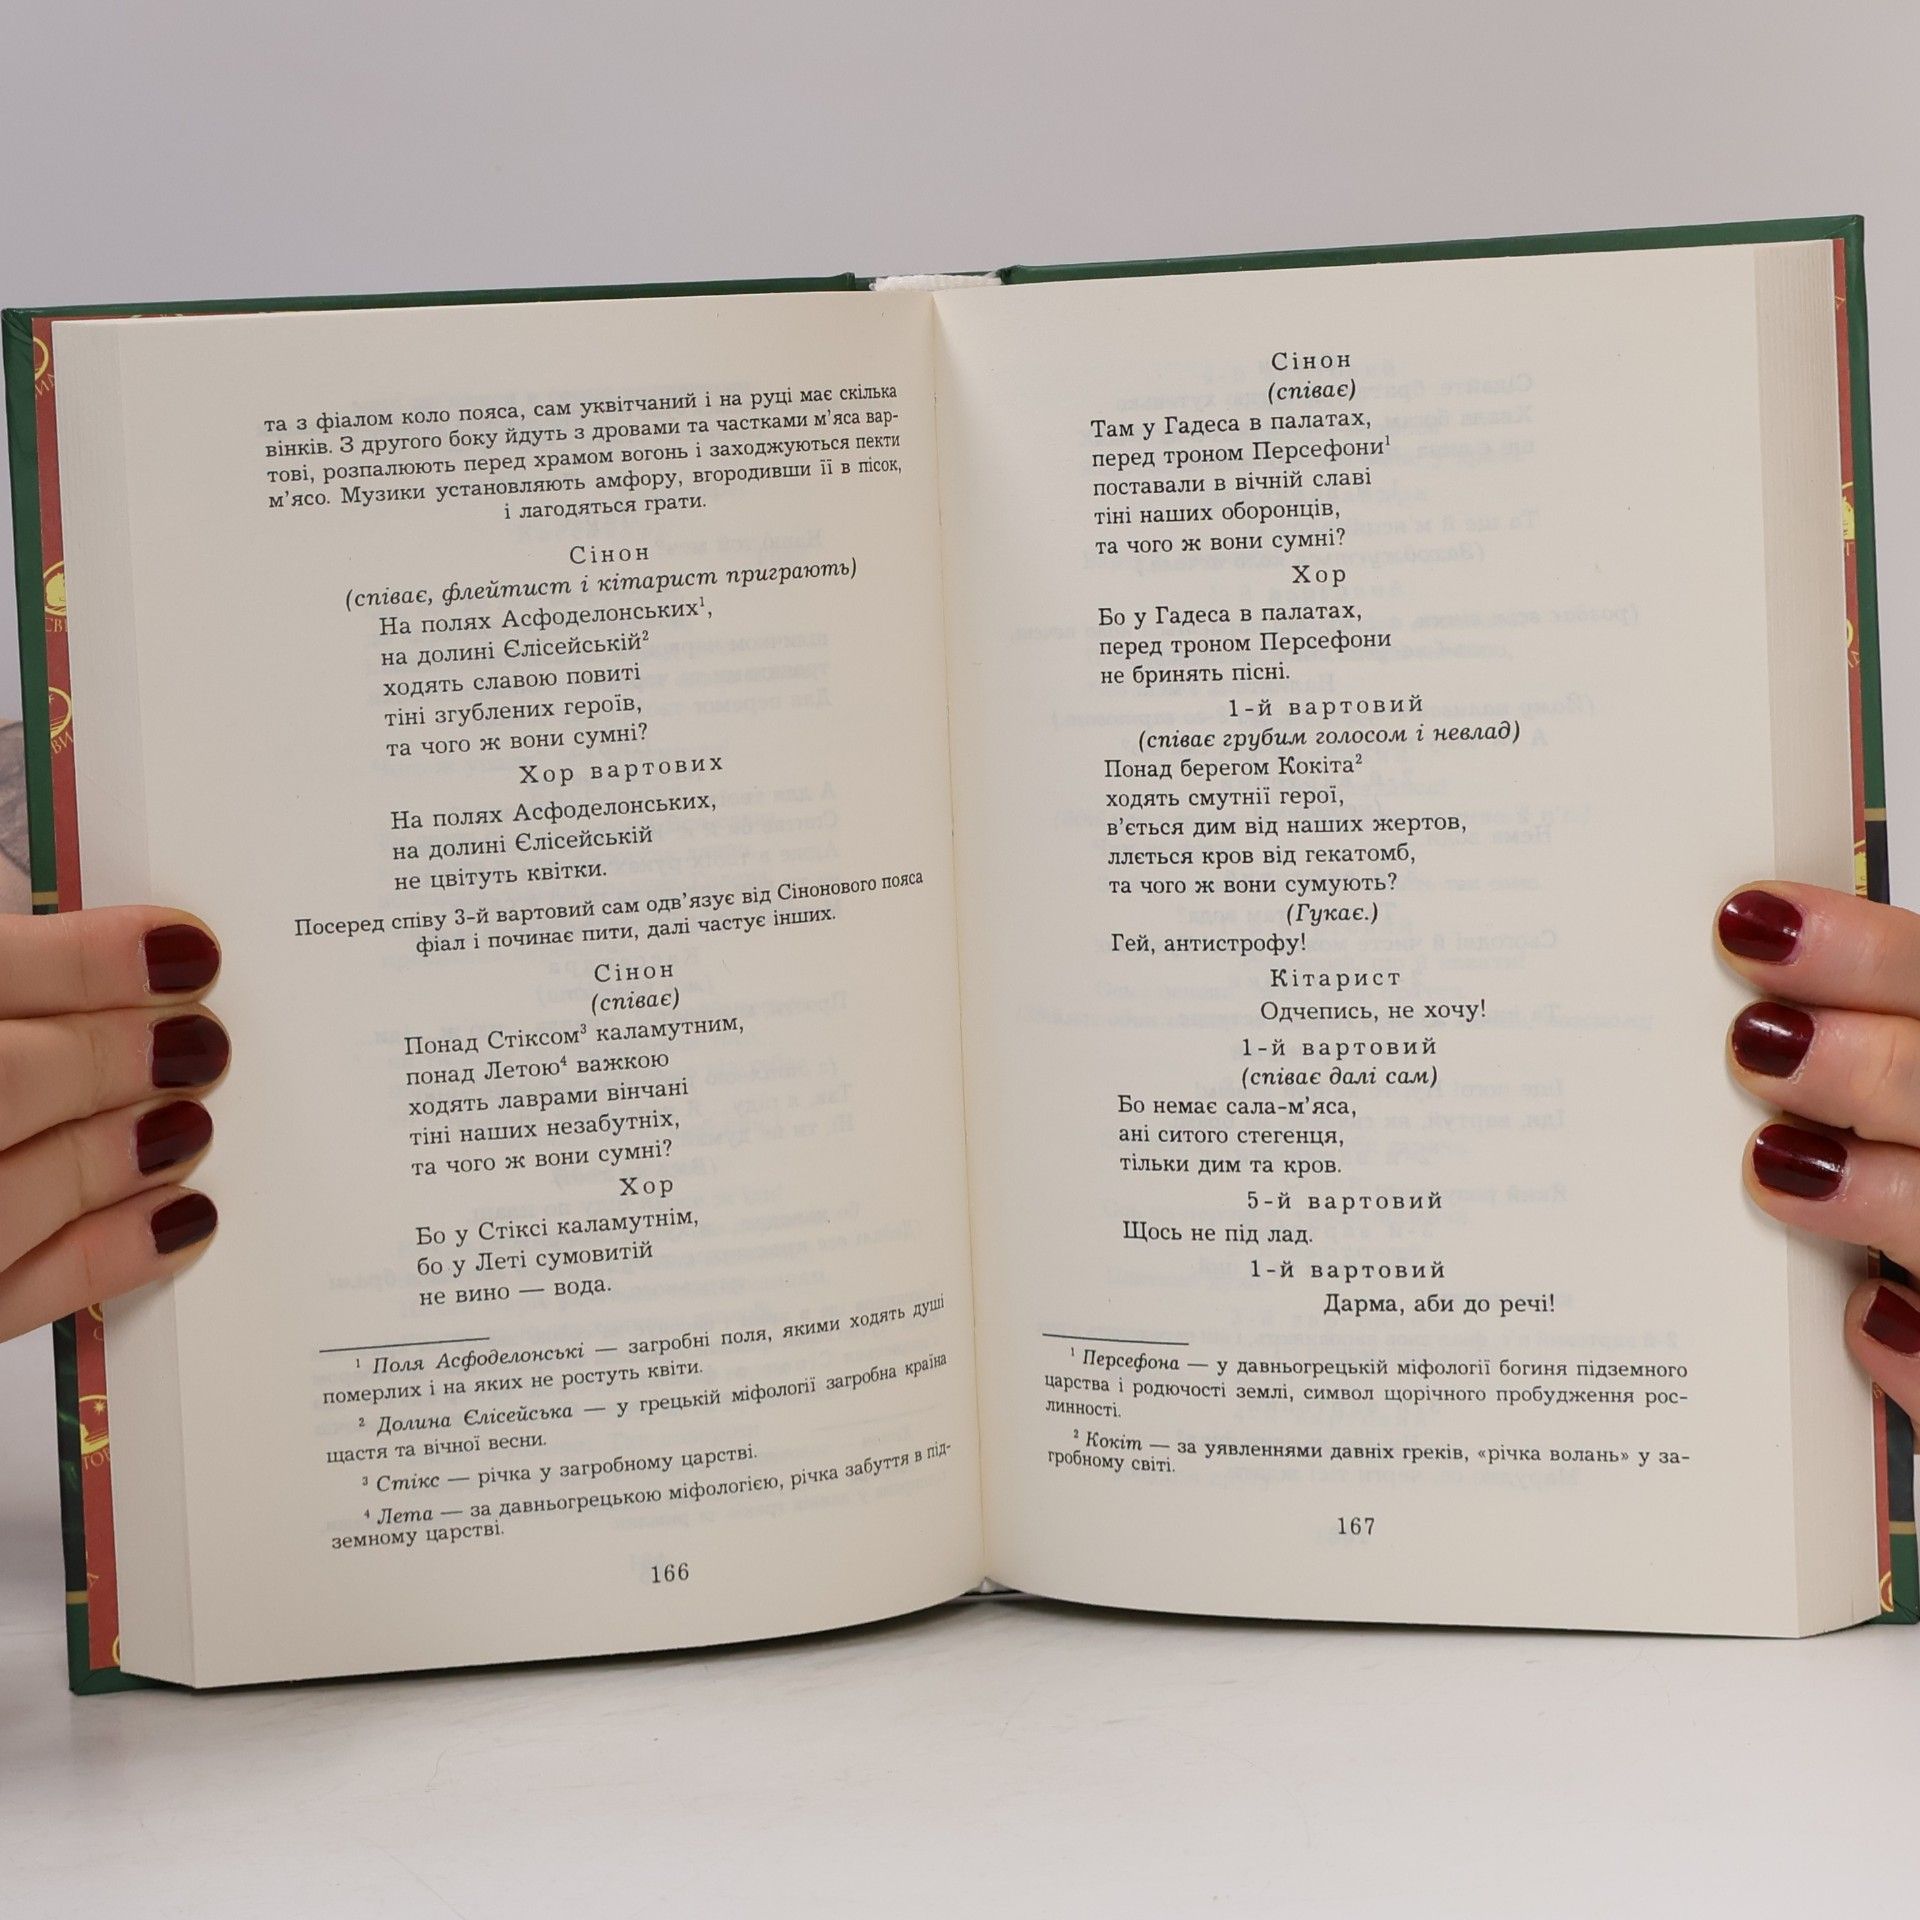 та з фіалом коло пояса, сам уквітчаний і на руці має скілька
вінків. З другого боку йдуть з дровами та частками м’яса вар-
тові, розпалюють перед храмом вогонь і заходжуються пекти
м’ясо. Музики установляють амфору, вгородивши її в пісок,
і лагодяться грати.
Сінон
(співає, флейтист і кітарист приграють)
На полях Асфоделонських¹,
на долині Єлісейській²
ходять славою повиті
тіні згублених героїв,
та чого ж вони сумні?
Хор вартових
На полях Асфоделонських,
на долині Єлісейській
не цвітуть квітки.
Посеред співу 3-й вартовий сам одв’язує від Сінонового пояса
фіал і починає пити, далі частує інших.
Сінон
(співає)
Понад Стіксом³ каламутним,
понад Летою⁴ важкою
ходять лаврами вінчані
тіні наших незабутніх,
та чого ж вони сумні?
Хор
Бо у Стіксі каламутнім,
бо у Леті сумовитій
не вино — вода.
¹ Поля Асфоделонські — загробні поля, якими ходять душі
померлих і на яких не ростуть квіти.
² Долина Єлісейська — у грецькій міфології загробна країна
щастя та вічної весни.
³ Стікс — річка у загробному царстві.
⁴ Лета — за давньогрецькою міфологією, річка забуття в під-
земному царстві.
166
Сінон
(співає)
Там у Гадеса в палатах,
перед троном Персефони¹
поставали в вічній славі
тіні наших оборонців,
та чого ж вони сумні?
Хор
Бо у Гадеса в палатах,
перед троном Персефони
не бринять пісні.
1-й вартовий
(співає грубим голосом і невлад)
Понад берегом Кокіта²
ходять смутнії герої,
в’ється дим від наших жертов,
ллється кров від гекатомб,
та чого ж вони сумують?
(Гукає.)
Гей, антистрофу!
Кітарист
Одчепись, не хочу!
1-й вартовий
(співає далі сам)
Бо немає сала-м’яса,
ані ситого стегенця,
тільки дим та кров.
5-й вартовий
Щось не під лад.
1-й вартовий
Дарма, аби до речі!
¹ Персефона — у давньогрецькій міфології богиня підземного
царства і родючості землі, символ щорічного пробудження рос-
линності.
² Кокіт — за уявленнями давніх греків, «річка волань» у за-
гробному світі.
167